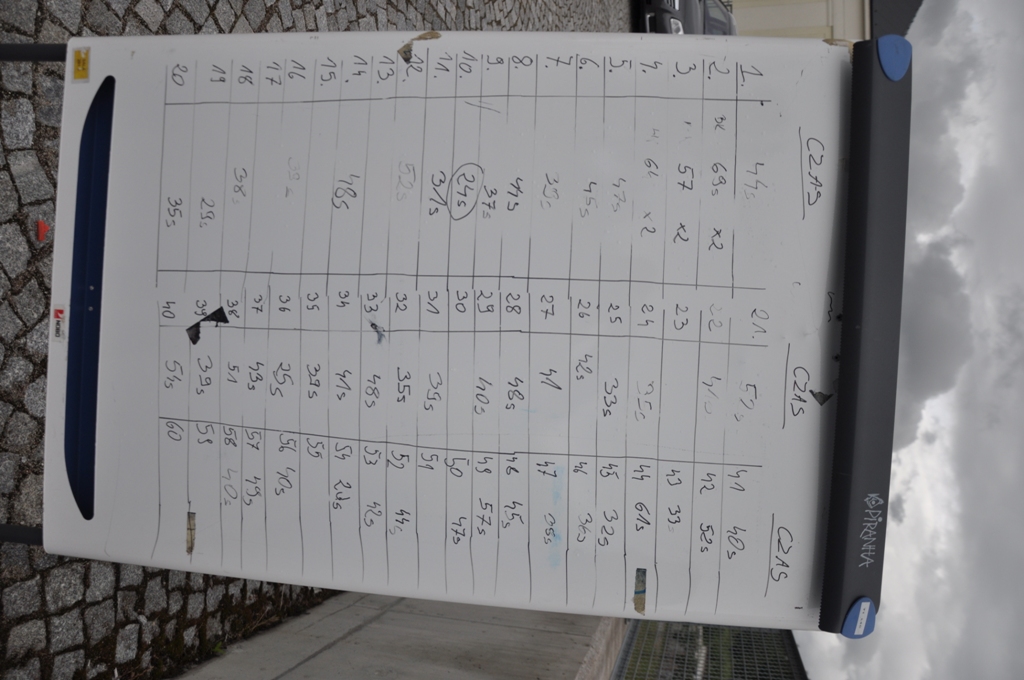 PIRANHA
CZAS CZAS CZAS
1. 44s 21. 52s 41 40s
2. 69s x2 22 42 52s
3. 57 x2 23 43 33s
4. 64 x2 24 44 61s
5. 47s 25 33s 45 32s
6. 45s 26 42s 46 36s
7. 27 41 47
8. 41s 28 48s 48 45s
9. 37s 29 40s 49 57s
10. 24s 30 50 47s
11. 31s 31 35s 51
12. 52s 32 35s 52 44s
13. 33 48s 53 42s
14. 48s 34 41s 54
15. 35 39s 55
16 36 25s 56 40s
17 37 43s 57 49s
18 38s 38 51 58 40s
19 29s 39 39s 59
20 35s 40 54s 60